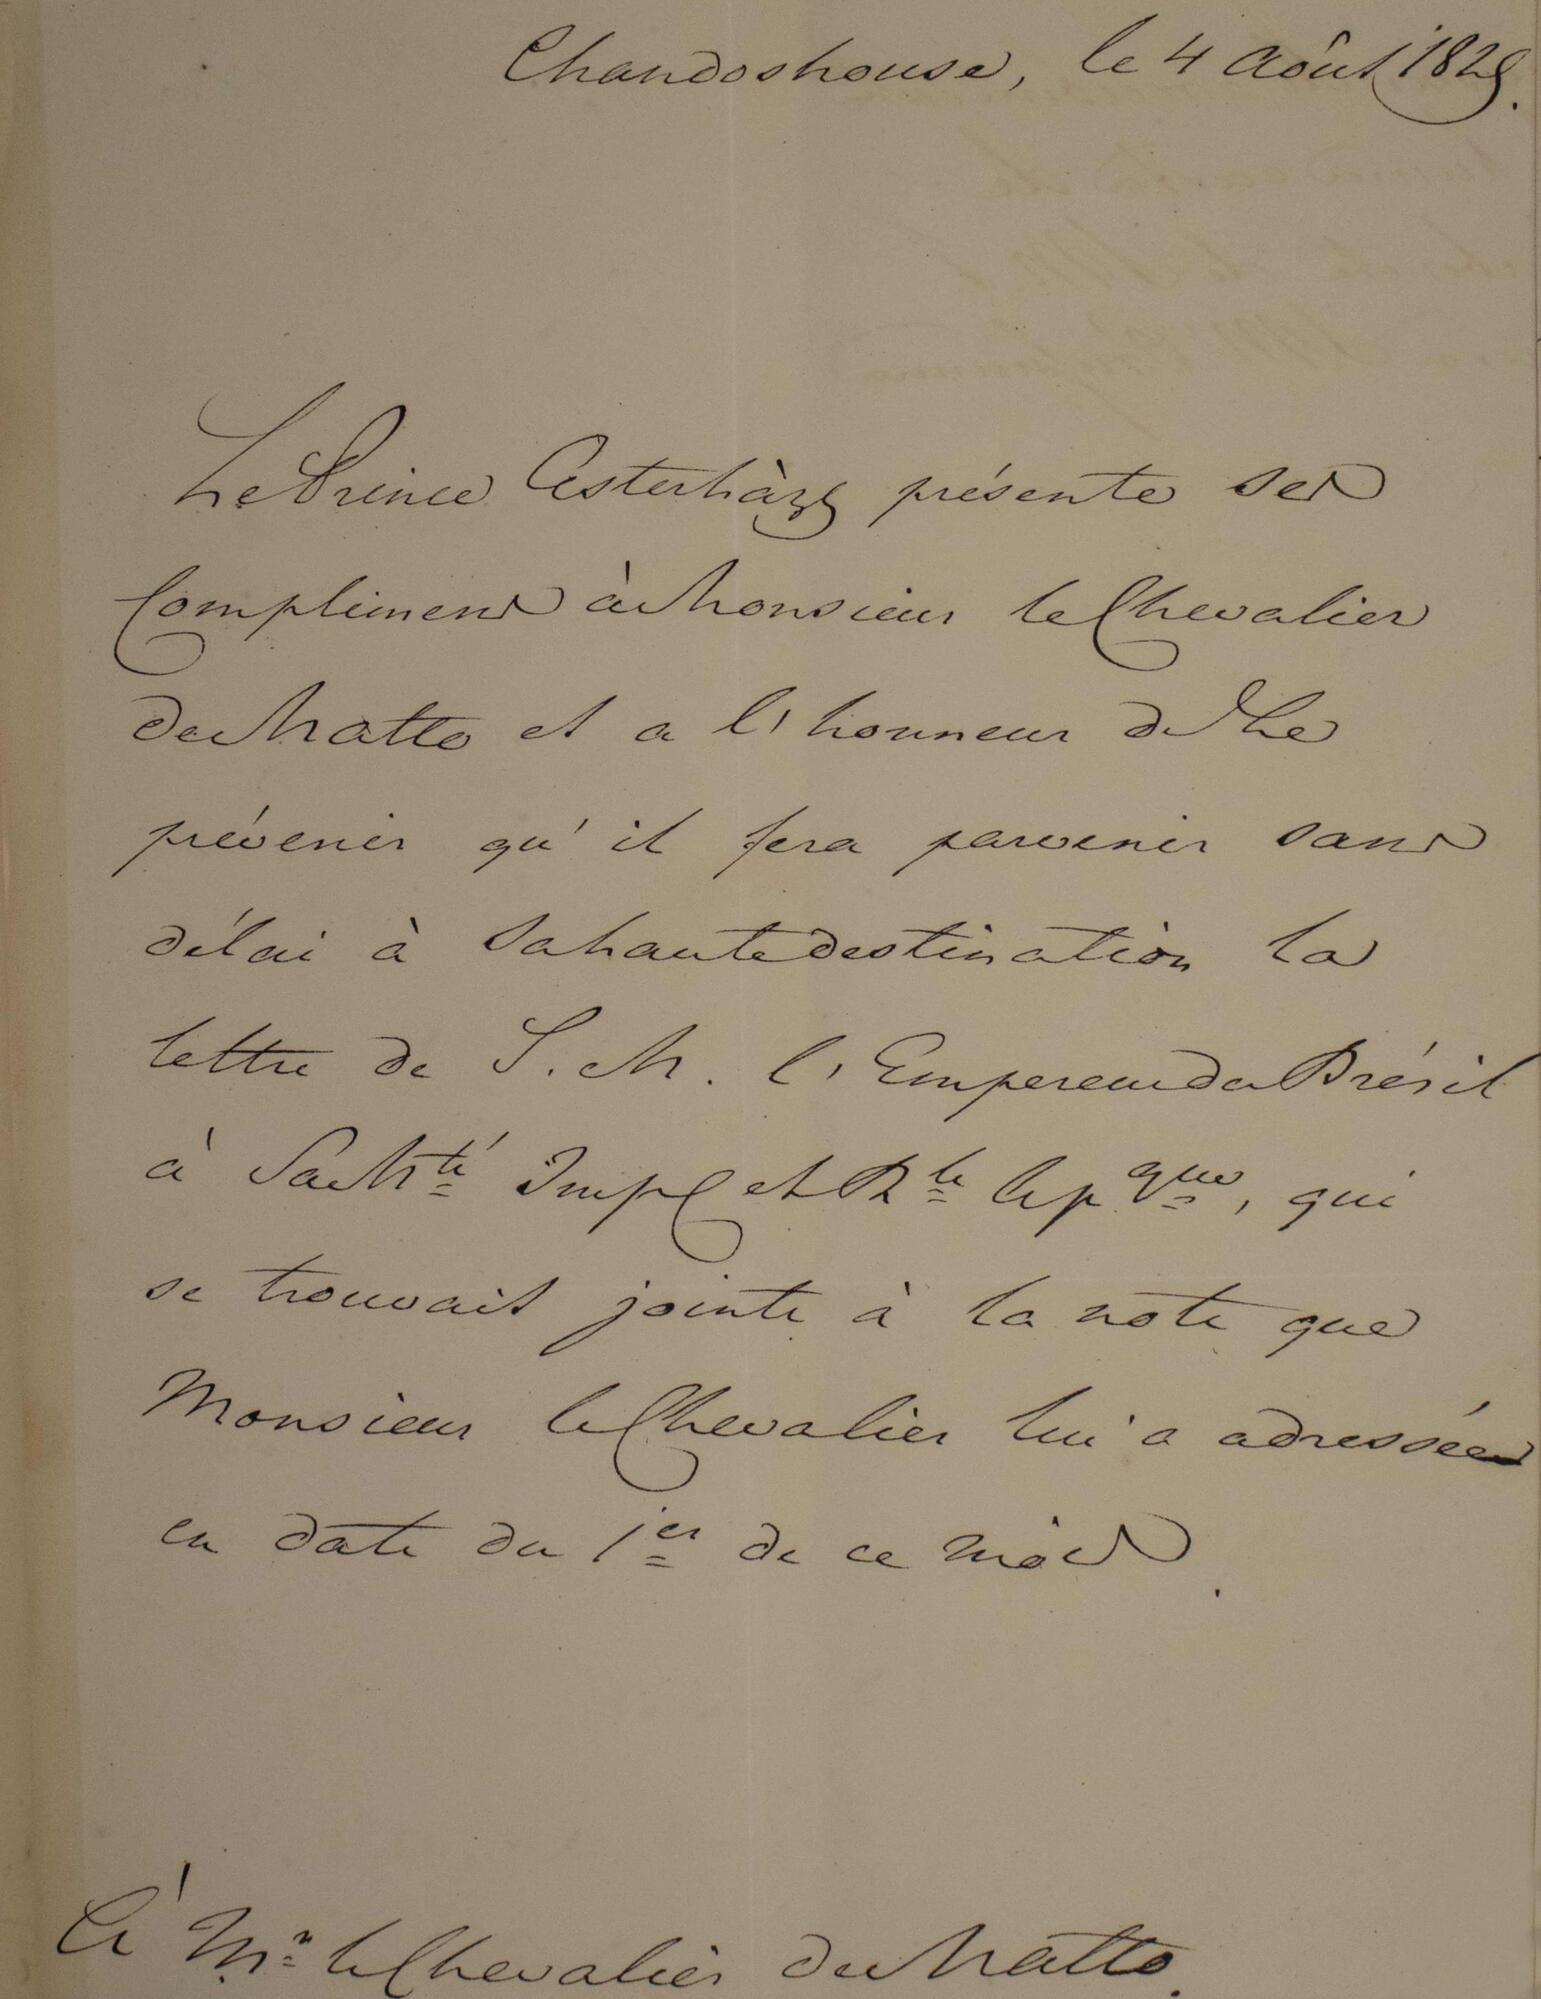 Chandoshouse, le 4 Août 1829.
Le Prince Esterhàzy présente ses
Complimens à Monsieur le Chevalier
de Matto et a l'honneur de Le
prévenir qu'il fera parvenir sans
délai à Sa haute destination la
lettre de S. M. l'Empereur du Brésil
à Sa Mté Imple et Rle Apque, qui
se trouvait jointe à la note que
Monsieur le Chevalier lui a adressée
en date du 1er de ce mois.
à Mr le Chevalier de Matto.